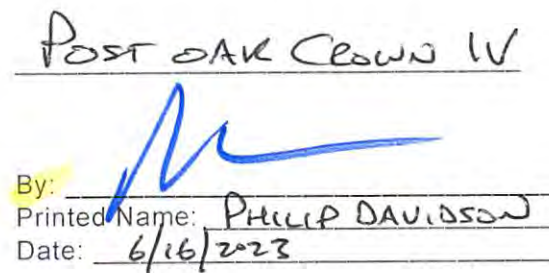 POST OAK CROWN IV
By:
Printed Name: PHILIP DAVIDSON
Date: 6/16/2023